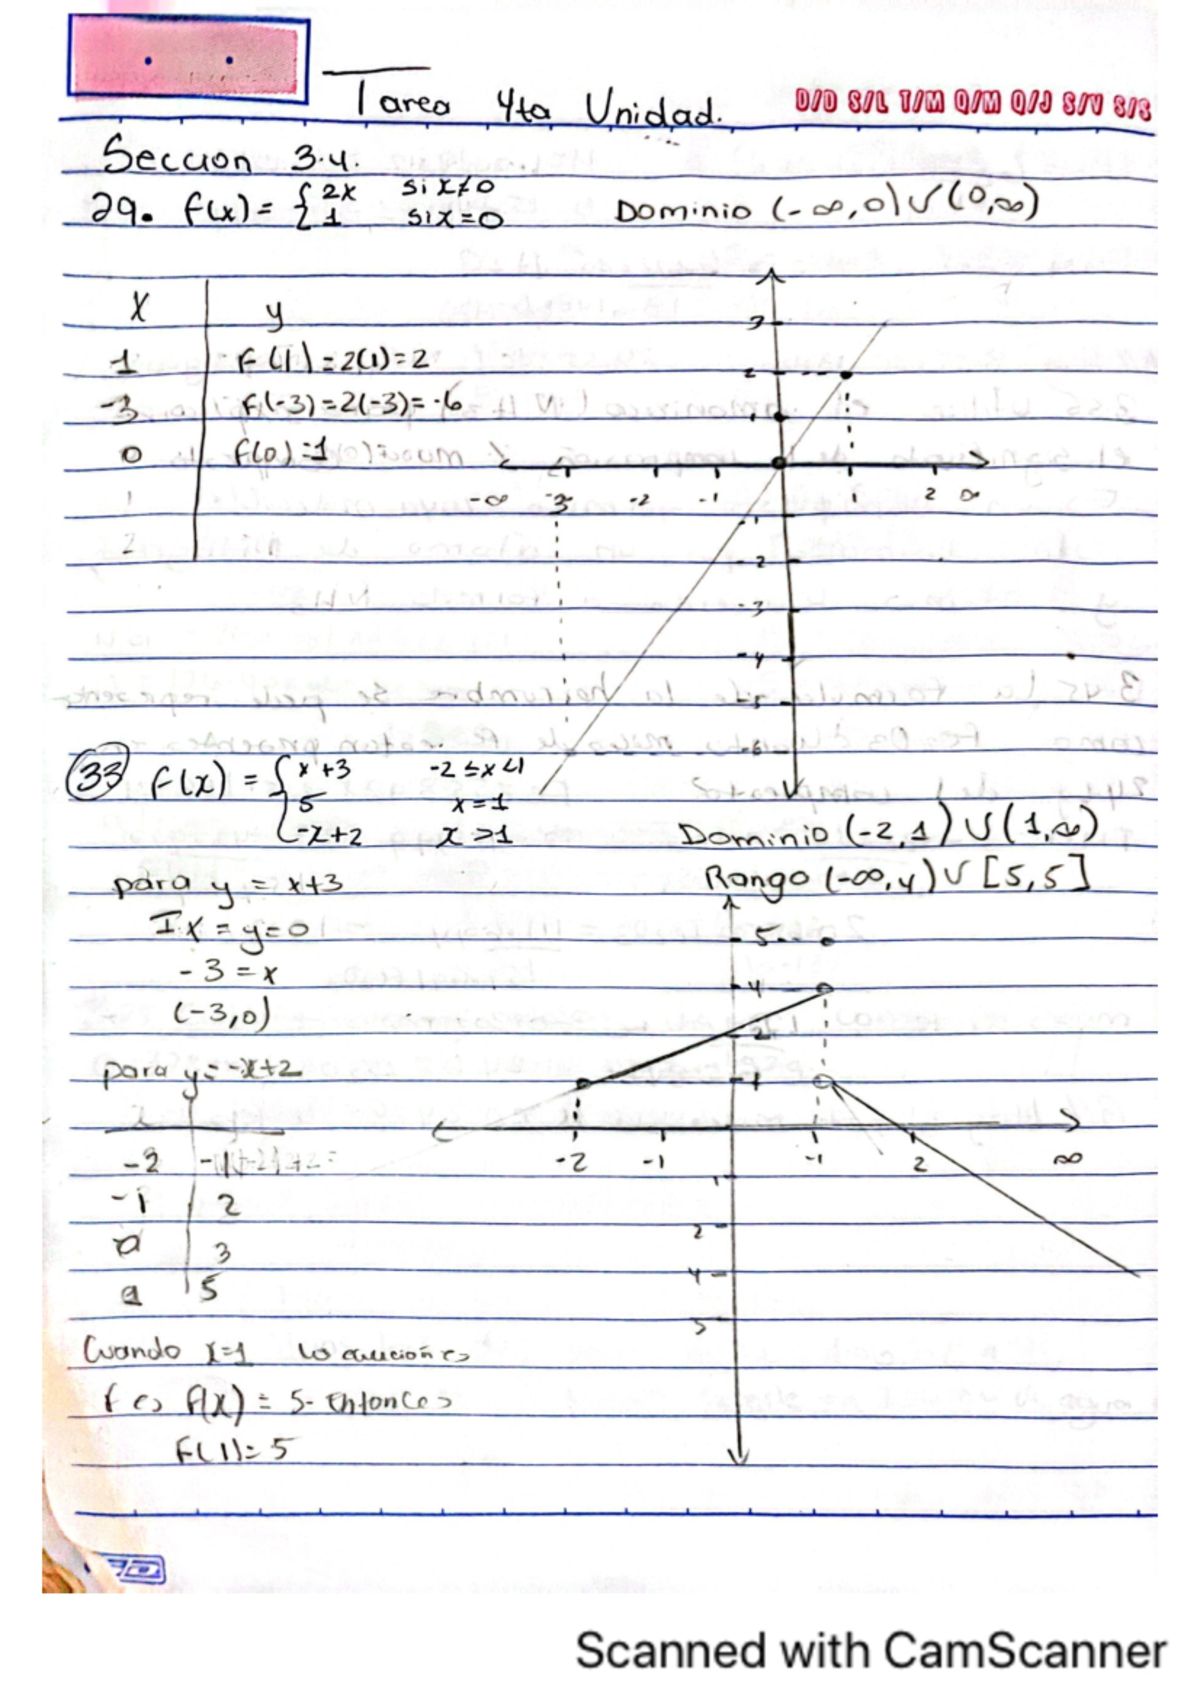 Tarea 4ta Unidad.
D/D S/L T/M Q/M Q/J S/V S/S
Seccion 3.4.
29. f(x) = { 2x si x≠0
1 si x=0
Dominio (-∞,0)∪(0,∞)
x y
1 f(1)=2(1)=2
-3 f(-3)=2(-3)=-6
0 f(0)=1
1
2
3
2
1
-∞ -3 -2 -1 1 2 ∞
-1
-2
-3
-4
-5
-6
33 f(x) = { x+3 -2≤x<1
5 x=1
-x+2 x>1
Dominio (-2,1)∪(1,∞)
Rango (-∞,4)∪[5,5]
para y = x+3
I.x = y=0
-3=x
(-3,0)
para y=-x+2
-2
-1 2
0 3
5
5
4
2
1
-2 -1 -1 2 ∞
1
2
4
5
Cuando x=1
f(x) = 5- Entonces
F(1)=5
Scanned with CamScanner